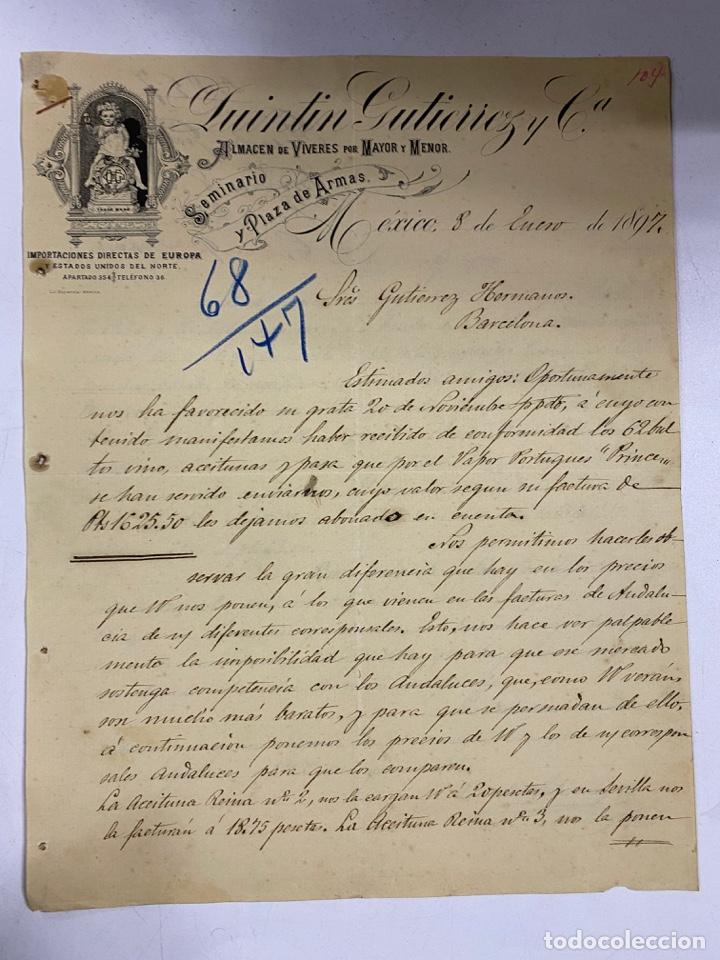 104
Quintin Gutierrez y Cª
ALMACEN DE VIVERES POR MAYOR Y MENOR.
Seminario
y Plaza de Armas.
México, 8 de Enero de 1897.
TRADE MARK
IMPORTACIONES DIRECTAS DE EUROPA
Y ESTADOS UNIDOS DEL NORTE.
APARTADO 354. TELÉFONO 36.
68
147
Sres Gutierrez Hermanos.
Barcelona.
Estimados amigos: Oportunamente
nos ha favorecido su grata 20 de Noviembre ppdo, á cuyo con
tenido manifestamos haber recibido de conformidad los 62 bul
tos vino, aceitunas y pasa que por el Vapor Portugues "Prince"
se han servido enviarnos, cuyo valor segun su factura de
Pts 1625.50 les dejamos abonado en cuenta.
Nos permitimos hacerles ob-
servar la gran diferencia que hay en los precios
que W nos ponen, á los que vienen en las facturas de Andalu-
cia de n/ diferentes corresponsales. Esto, nos hace ver palpable
mente la imposibilidad que hay para que ese mercado
sostenga competencia con los Andaluces, que, como W verán,
son mucho más baratos, y para que se persuadan de ello,
á continuacion ponemos los precios de W y los de n/ correspon-
sales Andaluces para que los comparen.
La Aceituna Reina nº 2, nos la cargan W á 20 pesetas, y en Sevilla nos
la facturán á 18.75 pesetas. La Aceituna Reina nº 3, nos la ponen
todocoleccion